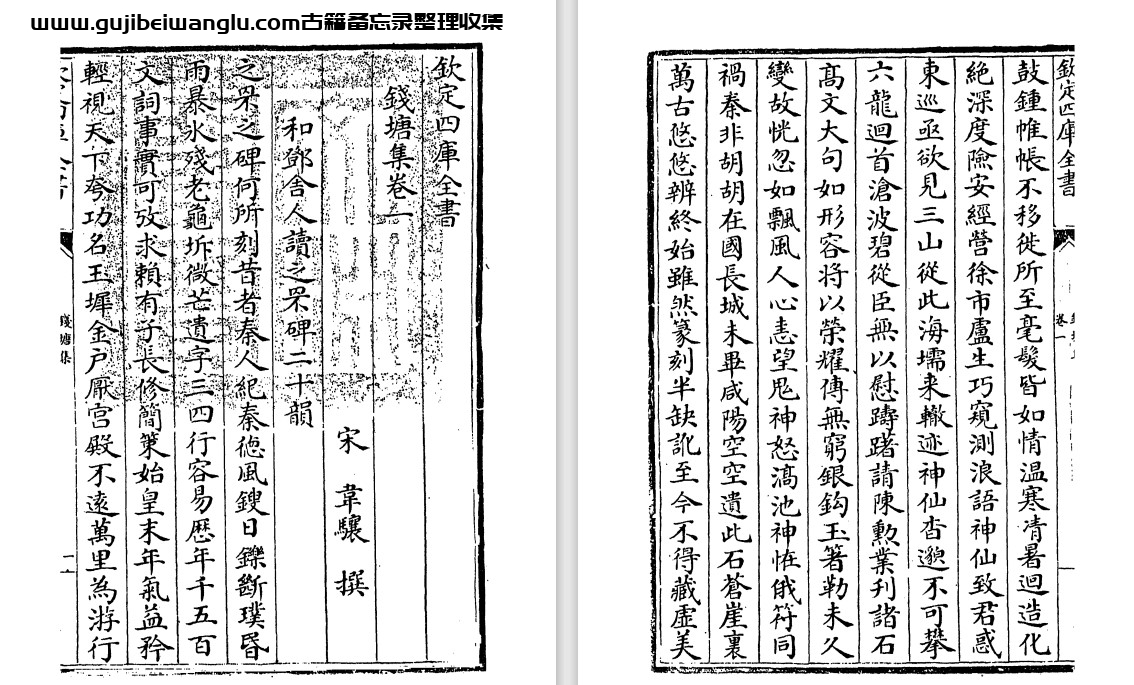 www.gujibeiwanglu.com古籍备忘录整理收集
欽定四庫全書
錢塘集卷一
宋 韋驤 撰
和鄧舍人讀之罘碑二十韻
之罘之碑何所刻昔者秦人紀秦德風鎪日鑠斷璞昏
雨暴氷殘老龜坼微芒遺字三四行容易歴年千五百
文詞事實可攷求賴有子長修簡策始皇末年氣益矜
輕視天下夸功名玉墀金户厭宫殿不逺萬里為游行
錢塘集
欽定四庫全書
卷一
鼓鍾帷帳不移徙所至毫髮皆如情温寒凊暑迴造化
絶深度險安經營徐市盧生巧窺測浪語神仙致君惑
東巡亟欲見三山從此海壖来轍迹神仙杳邈不可攀
六龍迴首滄波碧從臣無以慰躊躇請陳勲業刋諸石
髙文大句如形容將以榮耀傳無窮銀鈎玉箸勒未久
變故恍忽如飄風人心恚望鬼神怒滈池神恠俄符同
禍秦非胡胡在國長城未畢咸陽空空遺此石蒼崖裏
萬古悠悠辨終始雖然篆刻半缺訛至今不得藏虚美